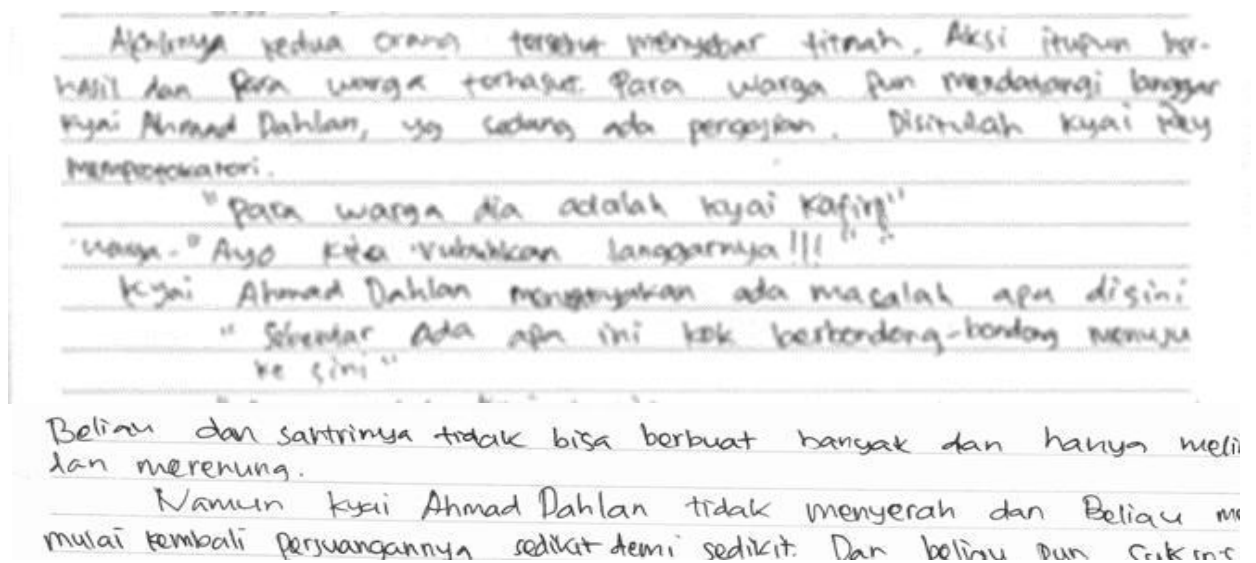 Akhirnya kedua orang tersebut menyebar fitnah. Aksi itupun ber-
hasil dan Para warga terhasut. Para warga pun mendatangi langgar
Kyai Ahmad Dahlan, yg sedang ada pengajian. Disitulah kyai
memprovokatori.
"Para warga dia adalah kyai Kafir!!"
warga - "Ayo kita rubuhkan langgarnya!!!"
Kyai Ahmad Dahlan menanyakan ada masalah apa disini
"Sebentar Ada apa ini kok berbondong-bondong menuju
ke sini"
Beliau dan santrinya tidak bisa berbuat banyak dan hanya
dan merenung.
Namun kyai Ahmad Dahlan tidak menyerah dan Beliau
mulai kembali perjuangannya sedikit demi sedikit. Dan beliau pun